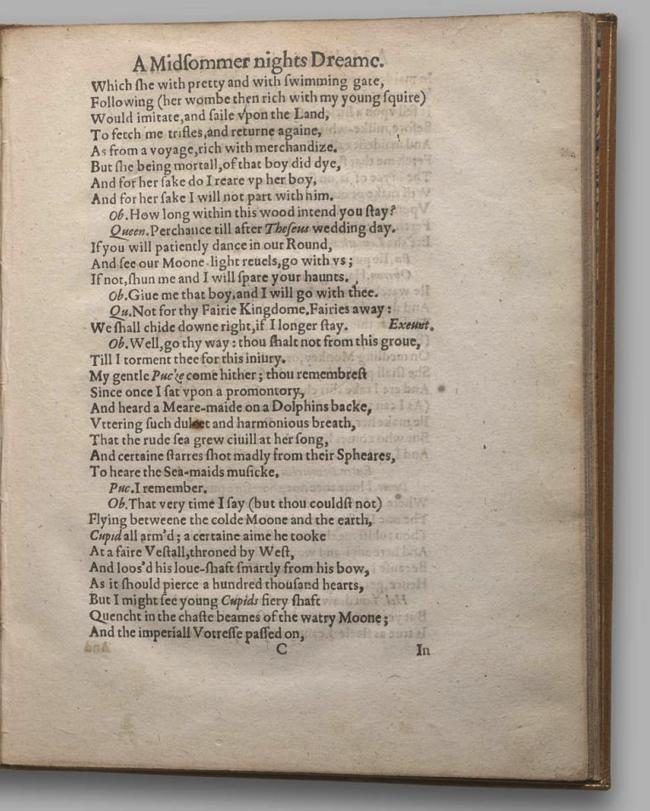 A Midſommer nights Dreame.
Which ſhe with pretty and with ſwimming gate,
Following (her wombe then rich with my young ſquire)
Would imitate, and ſaile vpon the Land,
To fetch me trifles, and returne againe,
As from a voyage, rich with merchandize.
But ſhe being mortall, of that boy did dye,
And for her ſake do I reare vp her boy,
And for her ſake I will not part with him.
Ob. How long within this wood intend you ſtay?
Queen. Perchance till after Theſeus wedding day.
If you will patiently dance in our Round,
And ſee our Moone-light reuels, go with vs;
If not, ſhun me and I will ſpare your haunts.
Ob. Giue me that boy, and I will go with thee.
Qu. Not for thy Fairie Kingdome. Fairies away:
We ſhall chide downe right, if I longer ſtay. Exeunt.
Ob. Well, go thy way: thou ſhalt not from this groue,
Till I torment thee for this iniury.
My gentle Pucke come hither; thou remembreſt
Since once I ſat vpon a promontory,
And heard a Meare-maide on a Dolphins backe,
Vttering ſuch dulcet and harmonious breath,
That the rude ſea grew ciuill at her ſong,
And certaine ſtarres ſhot madly from their Spheares,
To heare the Sea-maids muſicke.
Puc. I remember.
Ob. That very time I ſay (but thou couldſt not)
Flying betweene the colde Moone and the earth,
Cupid all arm'd; a certaine aime he tooke
At a faire Veſtall, throned by Weſt,
And loos'd his loue-ſhaft ſmartly from his bow,
As it ſhould pierce a hundred thouſand hearts,
But I might ſee young Cupids fiery ſhaft
Quencht in the chaſte beames of the watry Moone;
And the imperiall Votreſſe paſſed on,
C In